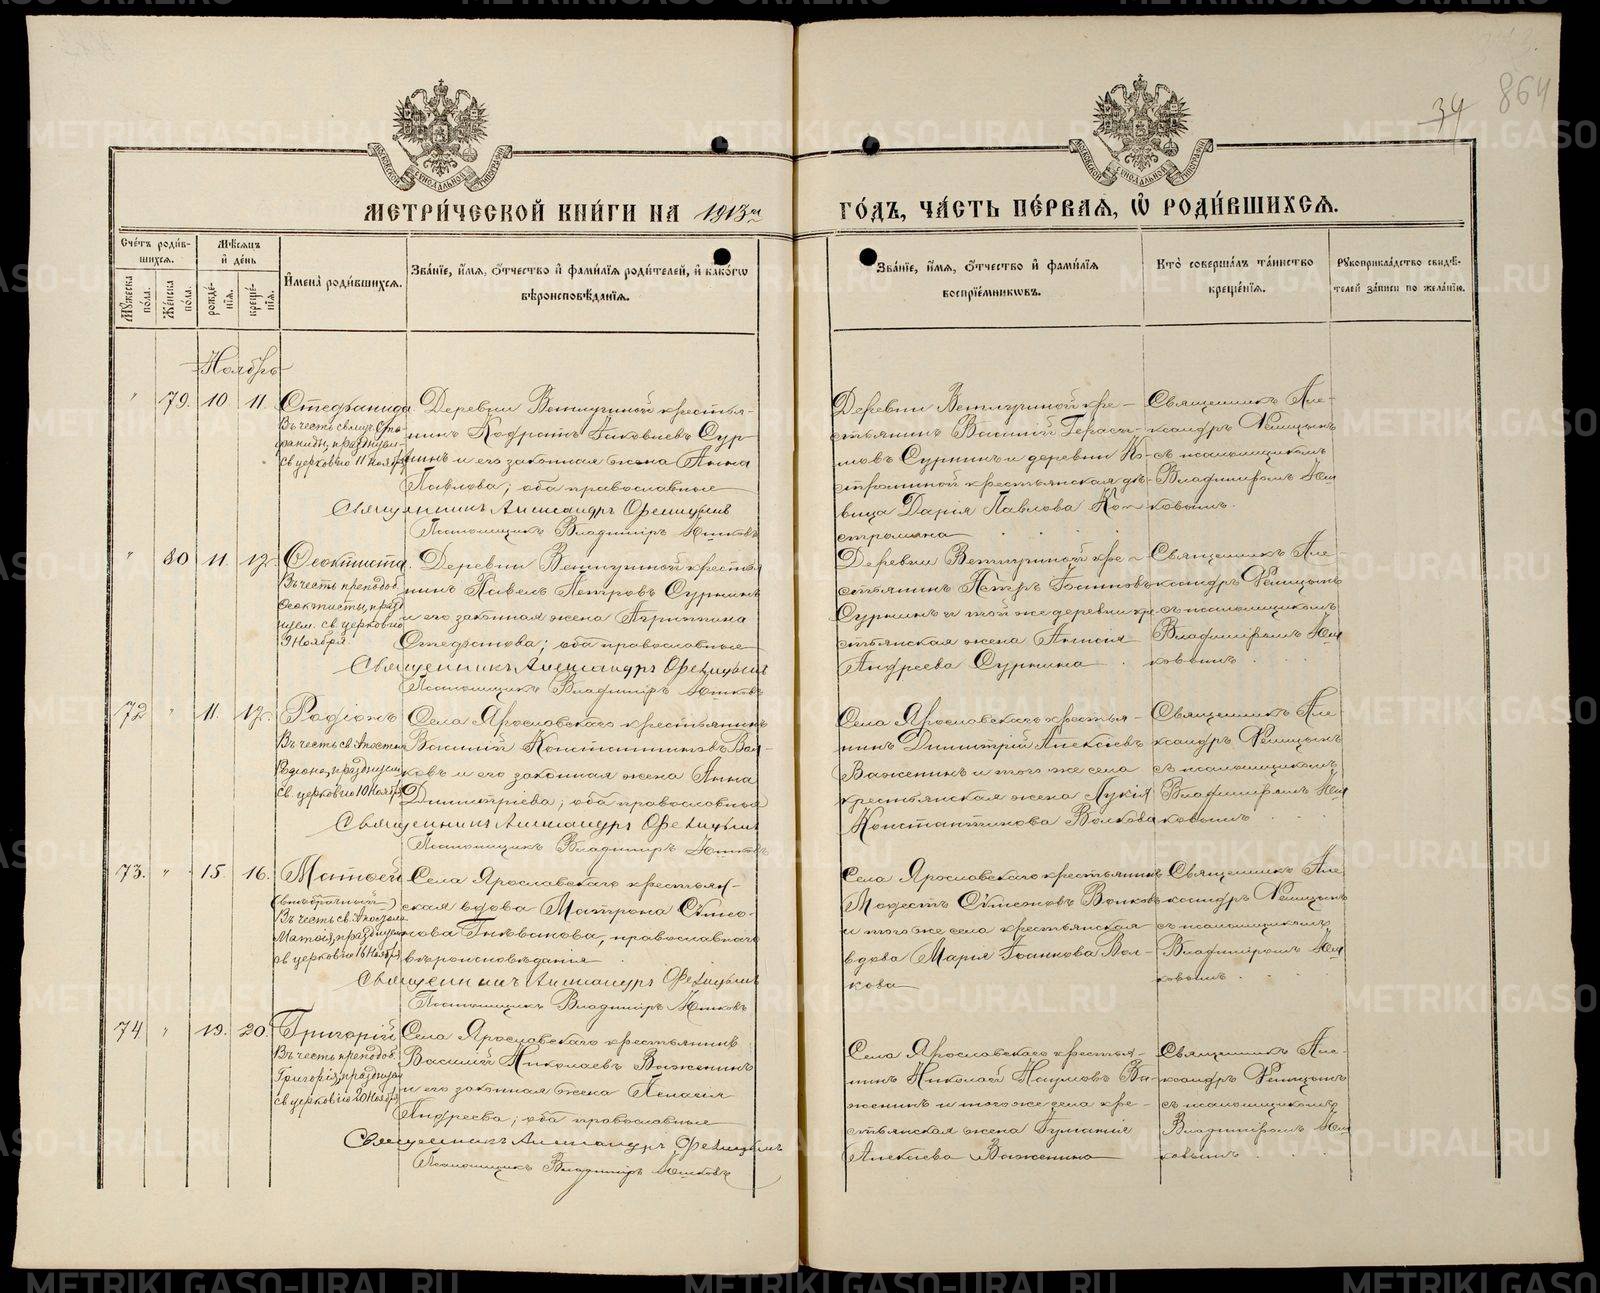 34
864
МЕТРИ́ЧЕСКОЙ КНИ́ГИ НА 1913й
ГО́ДЪ, ЧА́СТЬ ПЕ́РВАЯ, Ѡ҆ РОДИ́ВШИХСЯ.
Сче́тъ роди́в-
шихся.
Мѣ́сяцъ
и҆ де́нь
И҆мена̀ роди́вшихся.
Зва́нїе, и҆́мя, ѻ҆́тчество и҆ фами́лїя роди́телей, и҆ како́гѡ
вѣроисповѣ́данїя.
Мꙋ́жеска
по́ла.
Же́нска
по́ла.
рожде́-
нїя.
креще́-
нїя.
Зва́нїе, и҆́мя, ѻ҆́тчество и҆ фами́лїя
воспрїе́мникѡвъ.
Кто̀ соверша́лъ та́инство
креще́нїя.
Рꙋкоприкла́дство свидѣ́-
телей за́писи по жела́нїю.
Ноябрь
" 79. 10 11. Стефанида.
Въ честь свмуч. Сте-
фаниды, празднуем-
св церковью 11 Ноября
Деревни Ветлугиной крестья-
нинъ Кодратъ Іаковлевъ Сур-
нинъ и его законная жена Анна
Павлова; оба православные
Священникъ Александръ
Псаломщикъ Владиміръ Юшковъ
Деревни Ветлугиной кре-
стьянинъ Василій Гераси-
мовъ Сурнинъ и деревни Ко-
строминой крестьянская дѣ-
вица Дарія Павлова Ко-
стромина
Священникъ Але-
ксандръ
съ псаломщикомъ
Владиміромъ Юш-
ковымъ.
" 80 11. 12. Ѳеоктиста.
Въ честь преподоб.
Ѳеоктисты, празд-
нуем. св. церковію
9 Ноября.
Деревни Ветлугиной крестья-
нинъ Павелъ Петровъ Сурнинъ
и его законная жена Агриппина
Стефанова; оба православные
Священникъ Александръ
Псаломщикъ Владиміръ Юшковъ
Деревни Ветлугиной кре-
стьянинъ Петръ Іоанновъ
Сурнинъ и той же деревни кре-
стьянская жена Анисія
Андреева Сурнина
Священникъ Але-
ксандръ
съ псаломщикомъ
Владиміромъ Юш-
ковымъ
72 " 11. 12. Родіонъ
Въ честь св. Апостола
Родіона, празднуем.
св. церковію 10 Ноября
Села Ярославскаго крестьянинъ
Василій Константиновъ Вол-
ковъ и его законная жена Анна
Димитріева; оба православные
Священникъ Александръ
Псаломщикъ Владиміръ Юшковъ
Села Ярославскаго крестья-
нинъ Димитрій Алексіевъ
Важенинъ и того же села
крестьянская жена Лукія
Константинова Волкова
Священникъ Але-
ксандръ
съ псаломщикомъ
Владиміромъ Юш-
ковымъ
73. " 15. 16. Матѳей
(внѣбрачный)
Въ честь св. Апостола
Матѳія, празднуем
св церковію 16 Ноября
Села Ярославскаго крестьян-
ская вдова Матрона Сѵмео-
нова Гнѣвашова, православнаго
вѣроисповѣданія
Священникъ Александръ
Псаломщикъ Владиміръ Юшковъ
Села Ярославскаго крестьянинъ
Модестъ Сѵмеоновъ Волковъ
и того же села крестьянская
вдова Марія Іоаннова Вол-
кова
Священникъ Але-
ксандръ
съ псаломщикомъ
Владиміромъ Юш-
ковымъ
74 " 19. 20. Григорій
Въ честь преподоб.
Григорія, празднуем
св церковію 20 Ноября
Села Ярославскаго крестьянинъ
Василій Николаевъ Важенинъ
и его законная жена Пелагія
Андреева; оба православные
Священникъ Александръ
Псаломщикъ Владиміръ Юшковъ
Села Ярославскаго крестья-
нинъ Николай Наумовъ Ва-
женинъ и того же села кре-
стьянская жена
Алексіева Важенина
Священникъ Але-
ксандръ
съ псаломщикомъ
Владиміромъ Юш-
ковымъ
METRIKI.GASO-URAL.RU